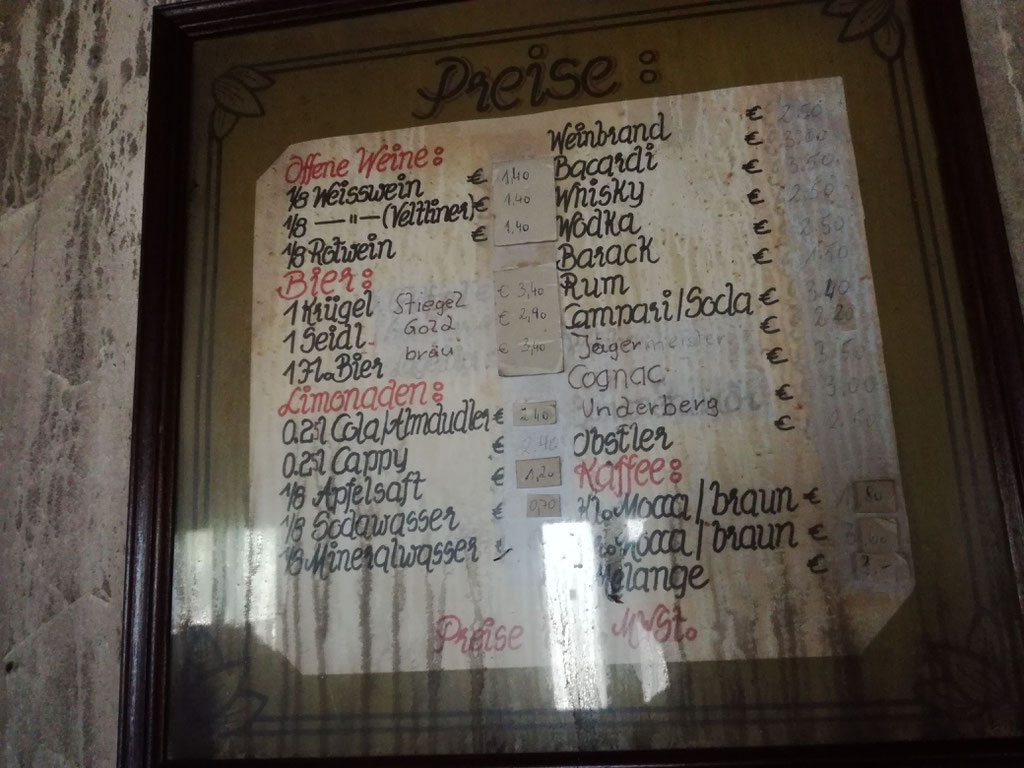 Preise:
Offene Weine:
1/8 Weisswein € 1,40
1/8 —"— (Veltliner) € 1,40
1/8 Rotwein € 1,40
Bier:
1 Krügel Stiegel € 3,40
1 Seidl Gold € 2,90
1 Fl. Bier bräu € 3,40
Limonaden:
0.2l Cola/Almdudler € 2.40
0.2l Cappy € 2.40
1/8 Apfelsaft € 1,20
1/8 Sodawasser € 0,70
1/8 Mineralwasser
Weinbrand € 2.50
Bacardi €
Whisky € 3.50
Wodka €
Barack € 2.50
Rum €
Campari/Soda € 3.40
Jägermeister € 2.20
Cognac € 3.50
Underberg € 3.00
Obstler €
Kaffee:
Kl. Mocca/braun €
Mocca/braun €
Melange €
Preise MWSt.